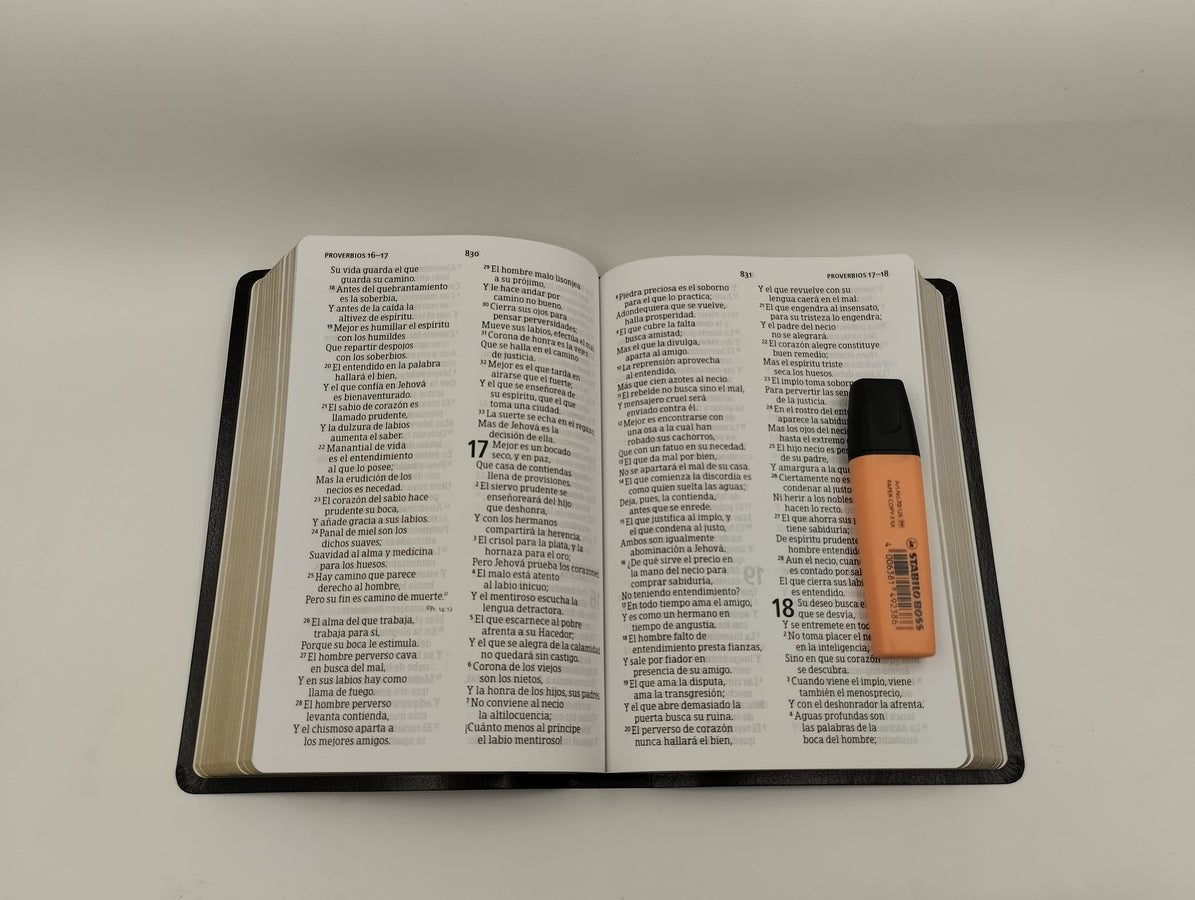 PROVERBIOS 16–17
830
Su vida guarda el que
guarda su camino.
18 Antes del quebrantamiento
es la soberbia,
Y antes de la caída la
altivez de espíritu.
19 Mejor es humillar el espíritu
con los humildes
Que repartir despojos
con los soberbios.
20 El entendido en la palabra
hallará el bien,
Y el que confía en Jehová
es bienaventurado.
21 El sabio de corazón es
llamado prudente,
Y la dulzura de labios
aumenta el saber.
22 Manantial de vida
es el entendimiento
al que lo posee;
Mas la erudición de los
necios es necedad.
23 El corazón del sabio hace
prudente su boca,
Y añade gracia a sus labios.
24 Panal de miel son los
dichos suaves;
Suavidad al alma y medicina
para los huesos.
25 Hay camino que parece
derecho al hombre,
Pero su fin es camino de muerte.
Pr. 14:12
26 El alma del que trabaja,
trabaja para sí,
Porque su boca le estimula.
27 El hombre perverso cava
en busca del mal,
Y en sus labios hay como
llama de fuego.
28 El hombre perverso
levanta contienda,
Y el chismoso aparta a
los mejores amigos.
29 El hombre malo lisonjea
a su prójimo,
Y le hace andar por
camino no bueno.
30 Cierra sus ojos para
pensar perversidades;
Mueve sus labios, efectúa el mal.
31 Corona de honra es la vejez
Que se halla en el camino
de justicia.
32 Mejor es el que tarda en
airarse que el fuerte;
Y el que se enseñorea de
su espíritu, que el que
toma una ciudad.
33 La suerte se echa en el regazo;
Mas de Jehová es la
decisión de ella.
17 Mejor es un bocado
seco, y en paz,
Que casa de contiendas
llena de provisiones.
2 El siervo prudente se
enseñoreará del hijo
que deshonra,
Y con los hermanos
compartirá la herencia.
3 El crisol para la plata, y la
hornaza para el oro;
Pero Jehová prueba los corazones.
4 El malo está atento
al labio inicuo;
Y el mentiroso escucha la
lengua detractora.
5 El que escarnece al pobre
afrenta a su Hacedor;
Y el que se alegra de la calamidad
no quedará sin castigo.
6 Corona de los viejos
son los nietos,
Y la honra de los hijos, sus padres.
7 No conviene al necio
la altilocuencia;
¡Cuánto menos al príncipe
el labio mentiroso!
831
PROVERBIOS 17–18
8 Piedra preciosa es el soborno
para el que lo practica;
Adondequiera que se vuelve,
halla prosperidad.
9 El que cubre la falta
busca amistad;
Mas el que la divulga,
aparta al amigo.
10 La reprensión aprovecha
al entendido,
Más que cien azotes al necio.
11 El rebelde no busca sino el mal,
Y mensajero cruel será
enviado contra él.
12 Mejor es encontrarse con
una osa a la cual han
robado sus cachorros,
Que con un fatuo en su necedad.
13 El que da mal por bien,
No se apartará el mal de su casa.
14 El que comienza la discordia es
como quien suelta las aguas;
Deja, pues, la contienda,
antes que se enrede.
15 El que justifica al impío, y
el que condena al justo,
Ambos son igualmente
abominación a Jehová.
16 ¿De qué sirve el precio en
la mano del necio para
comprar sabiduría,
No teniendo entendimiento?
17 En todo tiempo ama el amigo,
Y es como un hermano en
tiempo de angustia.
18 El hombre falto de
entendimiento presta fianzas,
Y sale por fiador en
presencia de su amigo.
19 El que ama la disputa,
ama la transgresión;
Y el que abre demasiado la
puerta busca su ruina.
20 El perverso de corazón
nunca hallará el bien,
Y el que revuelve con su
lengua caerá en el mal.
21 El que engendra al insensato,
para su tristeza lo engendra;
Y el padre del necio
no se alegrará.
22 El corazón alegre constituye
buen remedio;
Mas el espíritu triste
seca los huesos.
23 El impío toma soborn
Para pervertir las sen
de la justicia.
24 En el rostro del ent
aparece la sabidu
Mas los ojos del neci
hasta el extremo
25 El hijo necio es pe
de su padre,
Y amargura a la qu
26 Ciertamente no es
condenar al just
Ni herir a los nobles
hacen lo recto.
27 El que ahorra sus
tiene sabiduría;
De espíritu prudente
hombre entendid
28 Aun el necio, cuan
es contado por sa
El que cierra sus lab
es entendido.
18 Su deseo busca e
que se desvía,
Y se entremete en to
2 No toma placer el ne
en la inteligencia,
Sino en que su corazón
se descubra.
3 Cuando viene el impío, viene
también el menosprecio,
Y con el deshonrador la afrenta.
4 Aguas profundas son
las palabras de la
boca del hombre;
STABILO BOSS
4 006381 492386